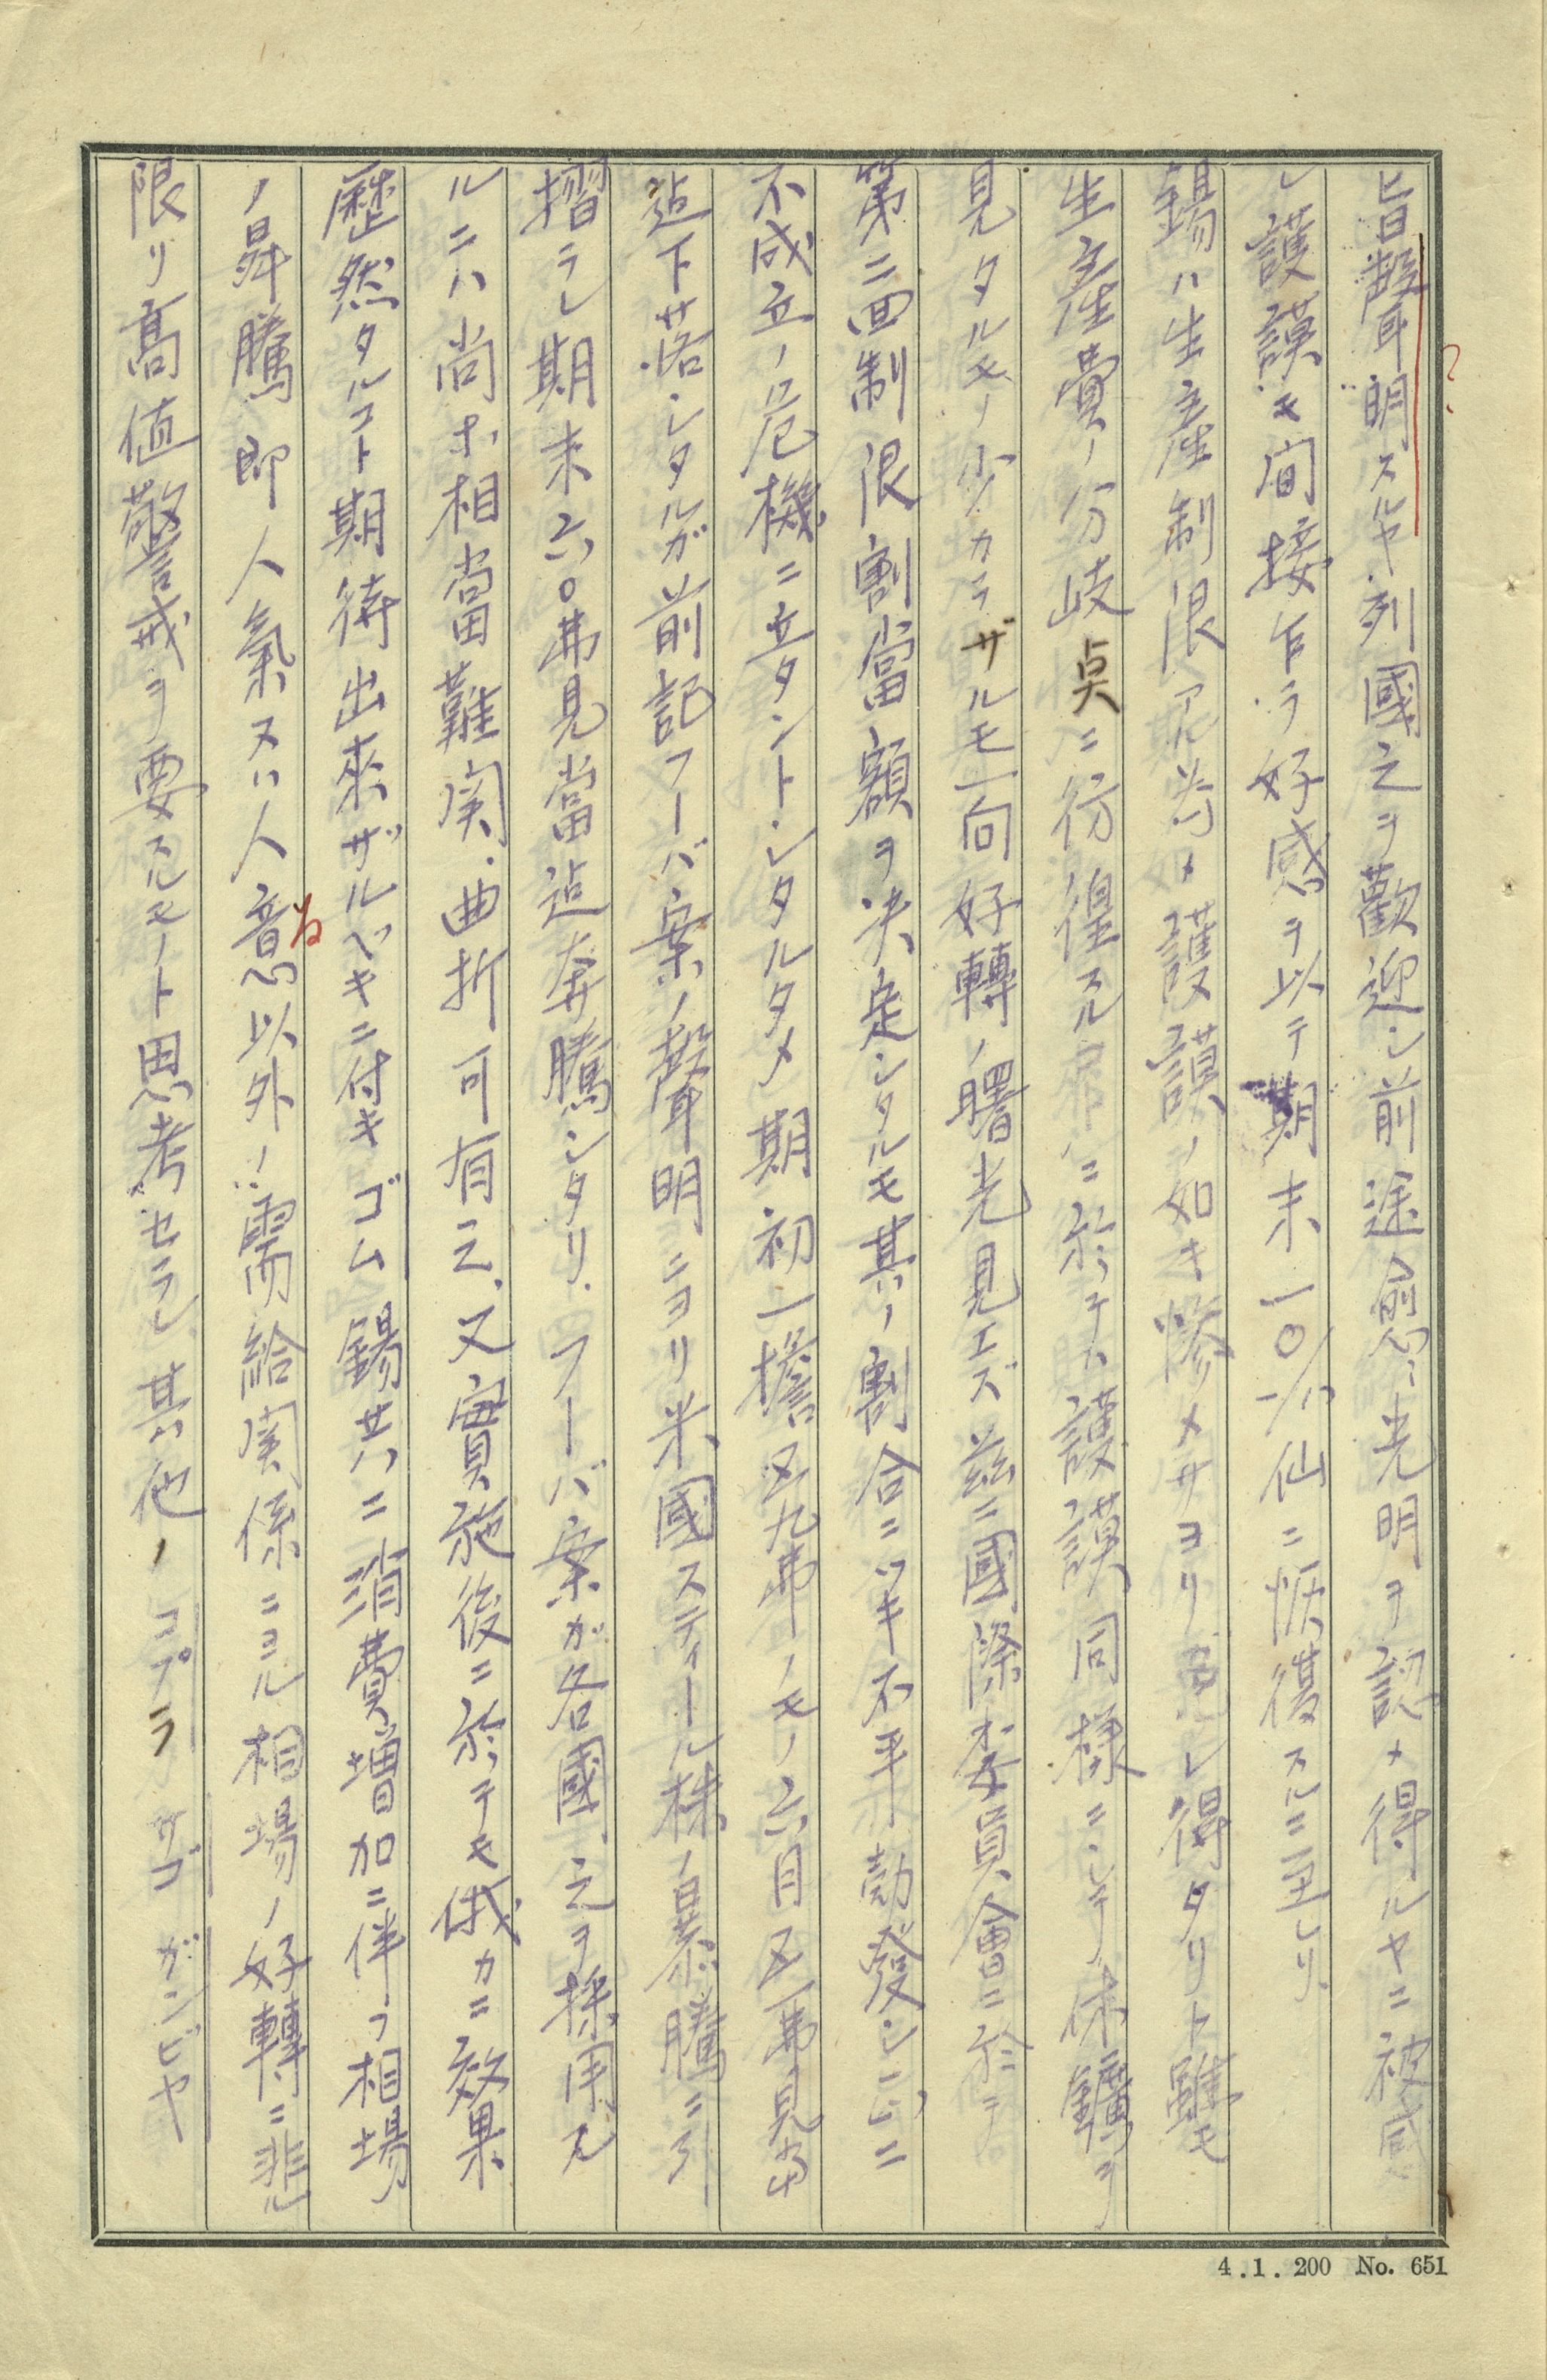 旨聲明スルヤ列國之ヲ歡迎シ前途愈々光明ヲ認メ得ルヤニ被感
シ護謨モ間接乍ラ好感ヲ以テ期末一〇 仙ニ恢復スルニ至レリ、
錫ハ生産制限アル為メ護謨ノ如キ惨メサヨリ 得タリト雖モ
生産費ノ分岐点ニ彷徨スル ニ於テハ護謨同様ニシテ休鑛ヲ
見タルモノ少カラザルモ一向好轉ノ曙光見エズ茲ニ國際委員會ニ於テ
第二回制限割當額ヲ決定シタルモ其ノ割合ニツキ不平勃發シ ニ
不成立ノ危機ニ立タントシタルタメ期初一擔五九弗ノモノ六月五一弗見當
迠下落シタルガ前記フーバ案ノ聲明ニヨリ米國スティール株ノ暴騰ニ引
摺ラレ期末六〇弗見當迠奔騰シタリ、フーバ案ガ各國之ヲ採用ス
ルニハ尚ホ相當難関、曲折可有之、又實施後ニ於テモ俄カニ效果
歴然タルコト期待出來ザルベキニ付キゴム 錫共ニ消費増加ニ伴フ相場
ノ昇騰即人氣又ハ人意以外ノ需給関係ニヨル相場ノ好轉ニ非ル
限リ高値警戒ヲ要スルモノト思考セラレ其他ノ コプラ サゴ ガンビヤ
4.1.200 No. 651